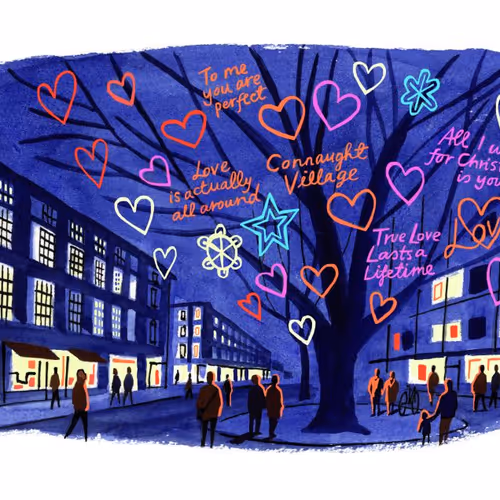 To me
you are
perfect
Love
is actually
all around
Connaught
Village
All I
for Christ
is you
True Love
Lasts a
Lifetime
Lov